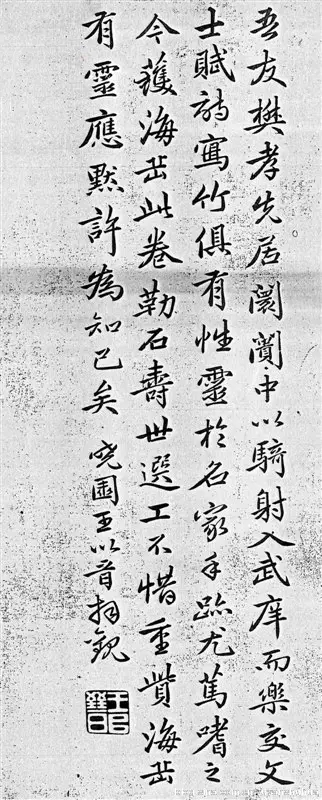 吾友樊孝先居闤闠中以騎射入武庠而樂交文
士賦詩寫竹俱有性靈於名家手跡尤篤嗜之
今蒦海岳此卷勒石壽世選工不惜重貲海岳
有靈應默許為知己矣 曉園王以晉拜觀